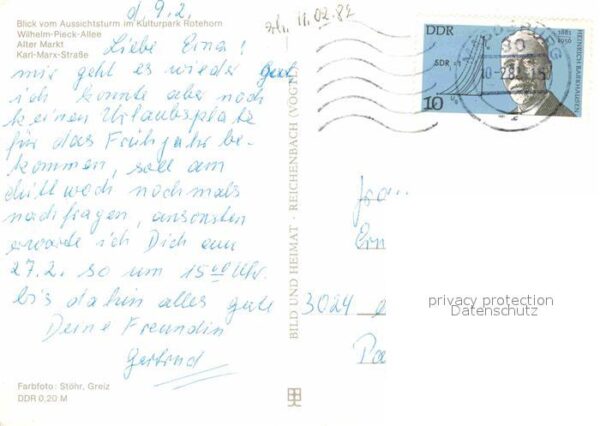 d. 9.2.
Blick vom Aussichtsturm im Kulturpark Rotehorn
Wilhelm-Pieck-Allee
Alter Markt
Karl-Marx-Straße
Liebe Erna!
mir geht es wieder gut
ich konnte aber noch
keinen Urlaubsplatz
für das Frühjahr be-
kommen, soll am
Mittwoch nochmals
nachfragen, ansonsten
erwarte ich Dich am
27.2. so um 15 00 Uhr.
bis dahin alles gute
Deine Freundin
Gertrud
Farbfoto: Stöhr, Greiz
DDR 0,20 M
BILD UND HEIMAT · REICHENBACH (VOGTL)
11.02.82
DDR
1881
1956
HEINRICH BARKHAUSEN
10
3024
privacy protection
Datenschutz